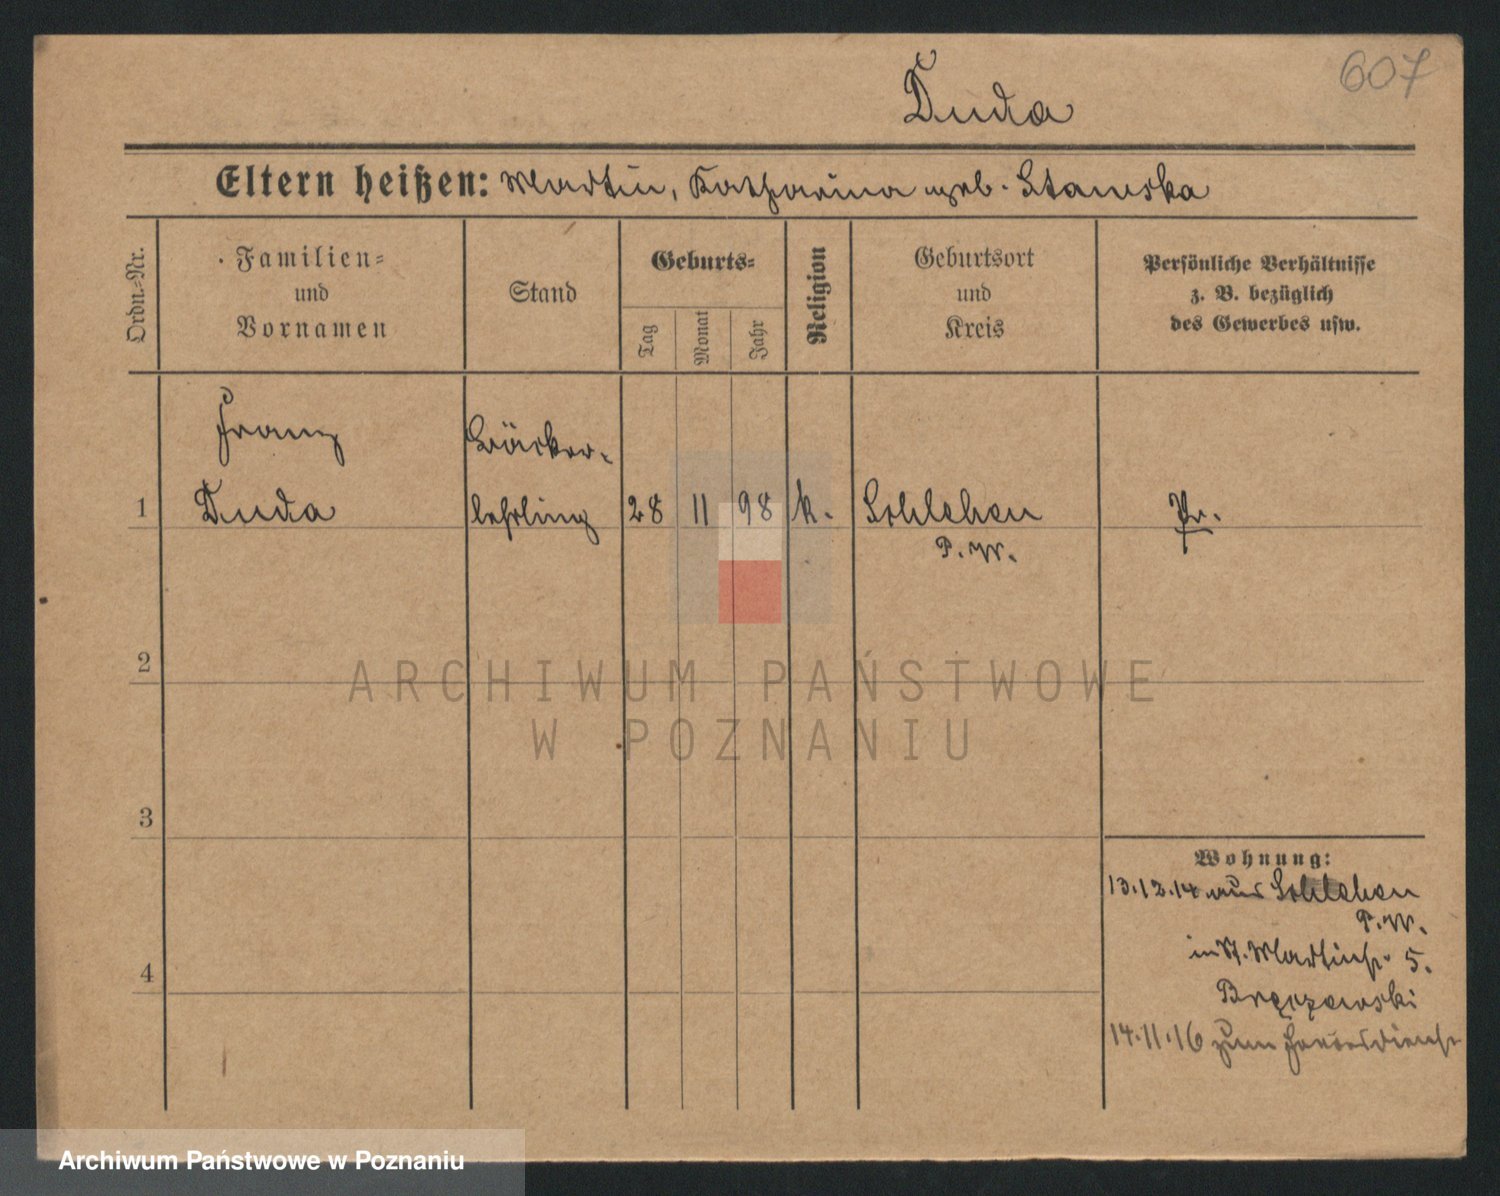 607
Duda
Eltern heißen: Martin, Katharina geb. Stawska
Ordn.=Nr.
Familien=
und
Vornamen
Stand
Geburts=
Tag
Monat
Jahr
Religion
Geburtsort
und
Kreis
Persönliche Verhältnisse
z. B. bezüglich
des Gewerbes usw.
Franz
Bäcker-
1 Duda lehrling 28 11 98 k. Schlehen Pr.
P.W.
2
3
4
Wohnung:
13.12.14 aus Schlehen
P.W.
in St. Martinstr. 5.
14.11.16 zum Heeresdienst
ARCHIWUM PAŃSTWOWE
W POZNANIU
Archiwum Państwowe w Poznaniu